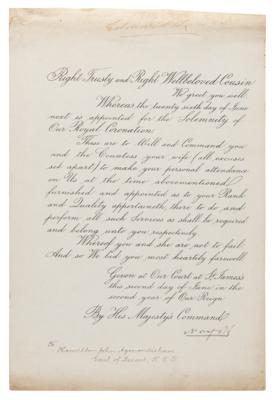 Right Trusty and Right Wellbeloved Cousin
We greet you well.
Whereas the twenty sixth day of June
next is appointed for the Solemnity of
Our Royal Coronation.
These are to Will and Command you
and the Countess your wife (all excuses
set apart) to make your personal attendance
on Us at the time abovementioned
furnished and appointed as to your Rank
and Quality appertaineth, there to do and
perform all such Services as shall be required
and belong unto you respectively.
Whereof you and she are not to fail
And so We bid you most heartily farewell
Given at Our Court at St. James's
this second day of June, in the
second year of Our Reign
By His Majesty's Command
To
Hamilton John Agmondisham
Earl of